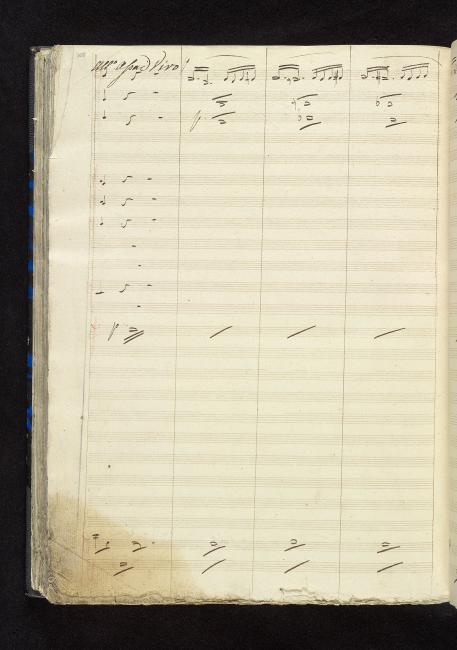 All.o assai Vivo
p
p